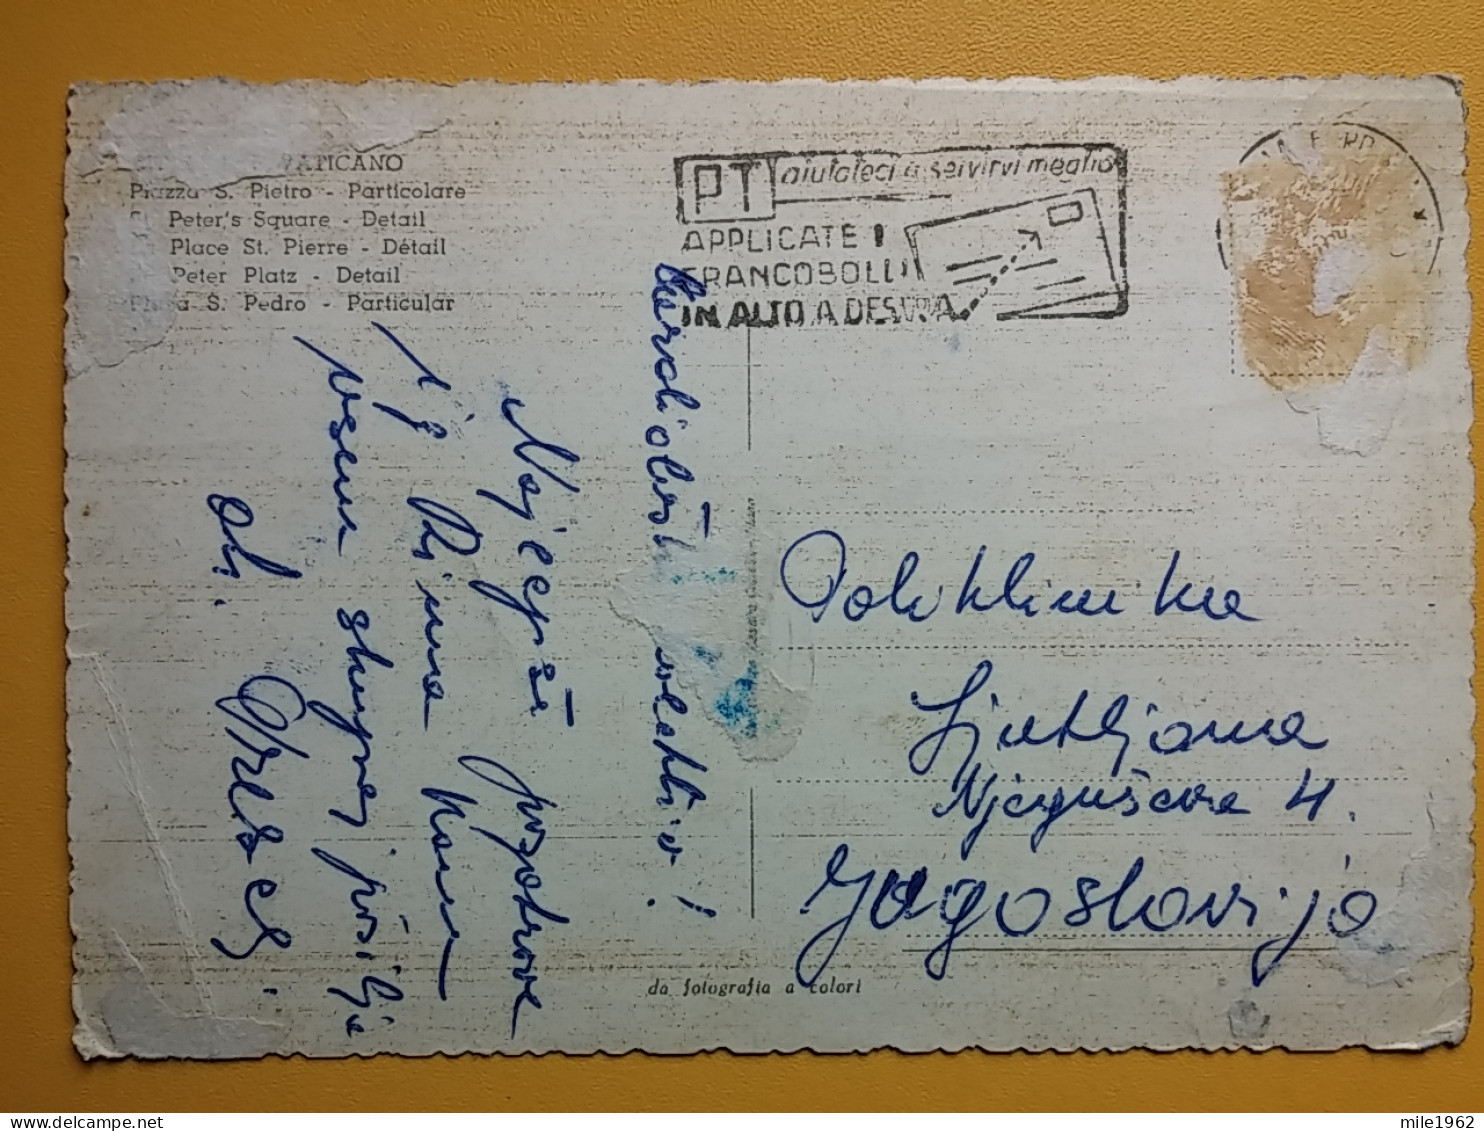 VATICANO
Piazza S. Pietro - Particolare
St. Peter's Square - Detail
Place St. Pierre - Détail
Peter Platz - Detail
Plaza S. Pedro - Particular
PT aiutateci a servirvi meglio
APPLICATE I
FRANCOBOLLI
IN ALTO A DESTRA
Kardiološki oddelek!
Najlepše pozdrave
iz Rima Vam
vsem skupaj pošilja
dr.
Poliklinika
Ljubljana
Njegoševa 4.
Jugoslovija
da fotografia a colori
mile1962